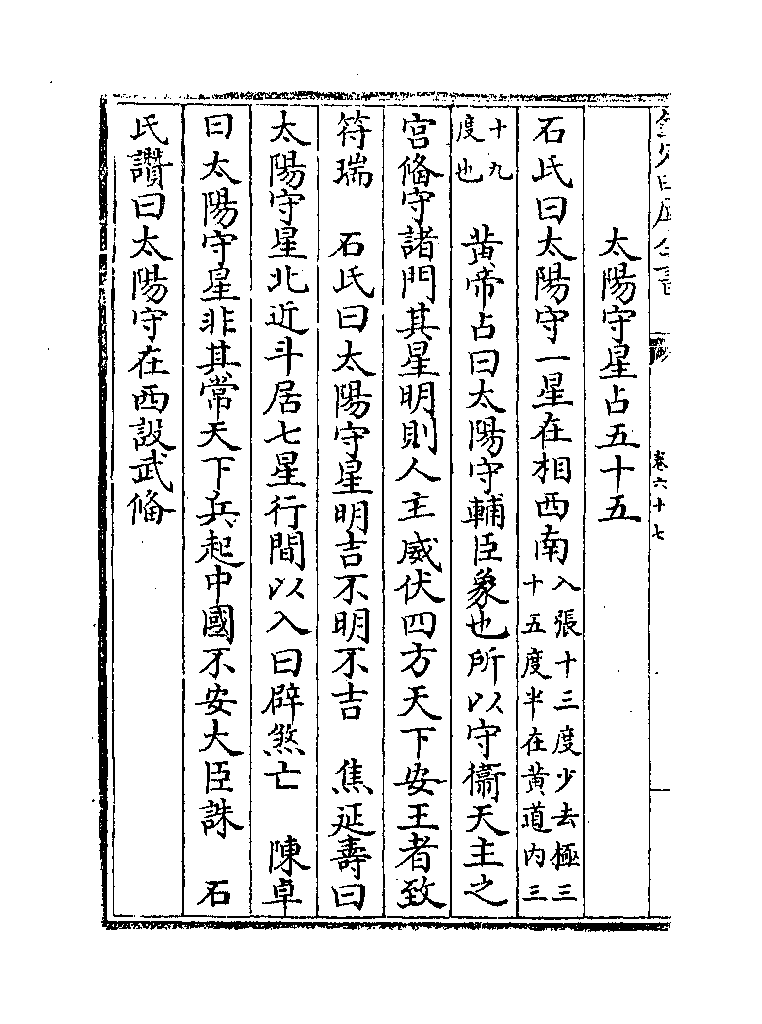 欽定四庫全書
卷六十七
太陽守星占五十五
石氏曰太陽守一星在相西南入張十三度少去極三十五度半在黄道内三
十九度也　黄帝占曰太陽守輔臣象也所以守衞天主之
宫俻守諸門其星明則人主威伏四方天下安王者致
符瑞　石氏曰太陽守星明吉不明不吉　焦延壽曰
太陽守星北近斗居七星行間以入曰辟煞亡　陳卓
曰太陽守星非其常天下兵起中國不安大臣誅　石
氏讚曰太陽守在西設武俻